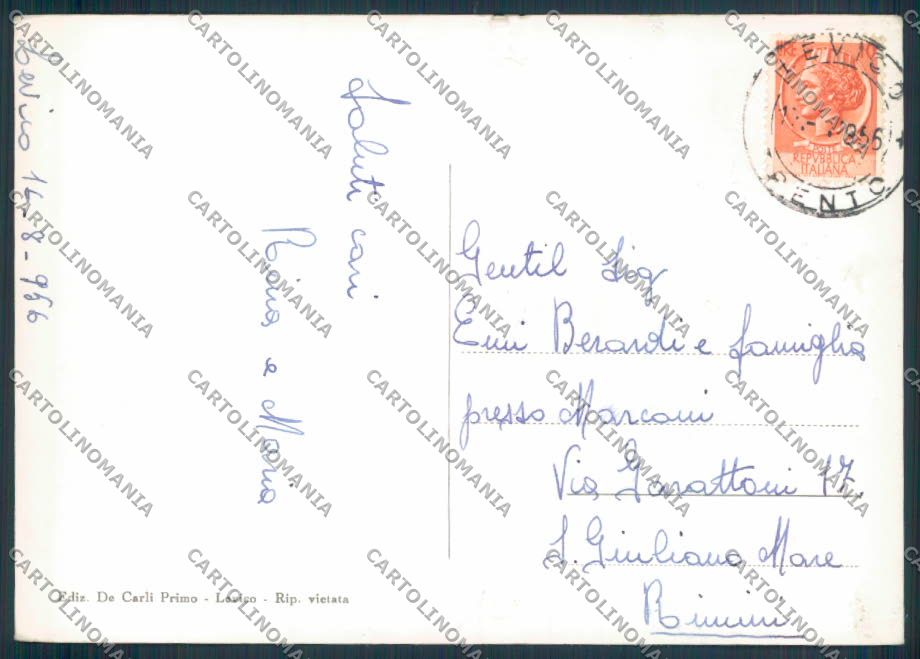 Levico 14-8-956
Saluti cari
Roina e Maria
LIRE
POSTE
REPVBBLICA
ITALIANA
LEVICO
1956
Gentil Sig
Emi Berardi e famiglia
presso Marconi
Via Garattoni 17.
S. Giuliano Mare
Rimini
Ediz. De Carli Primo - Levico - Rip. vietata
CARTOLINOMANIA